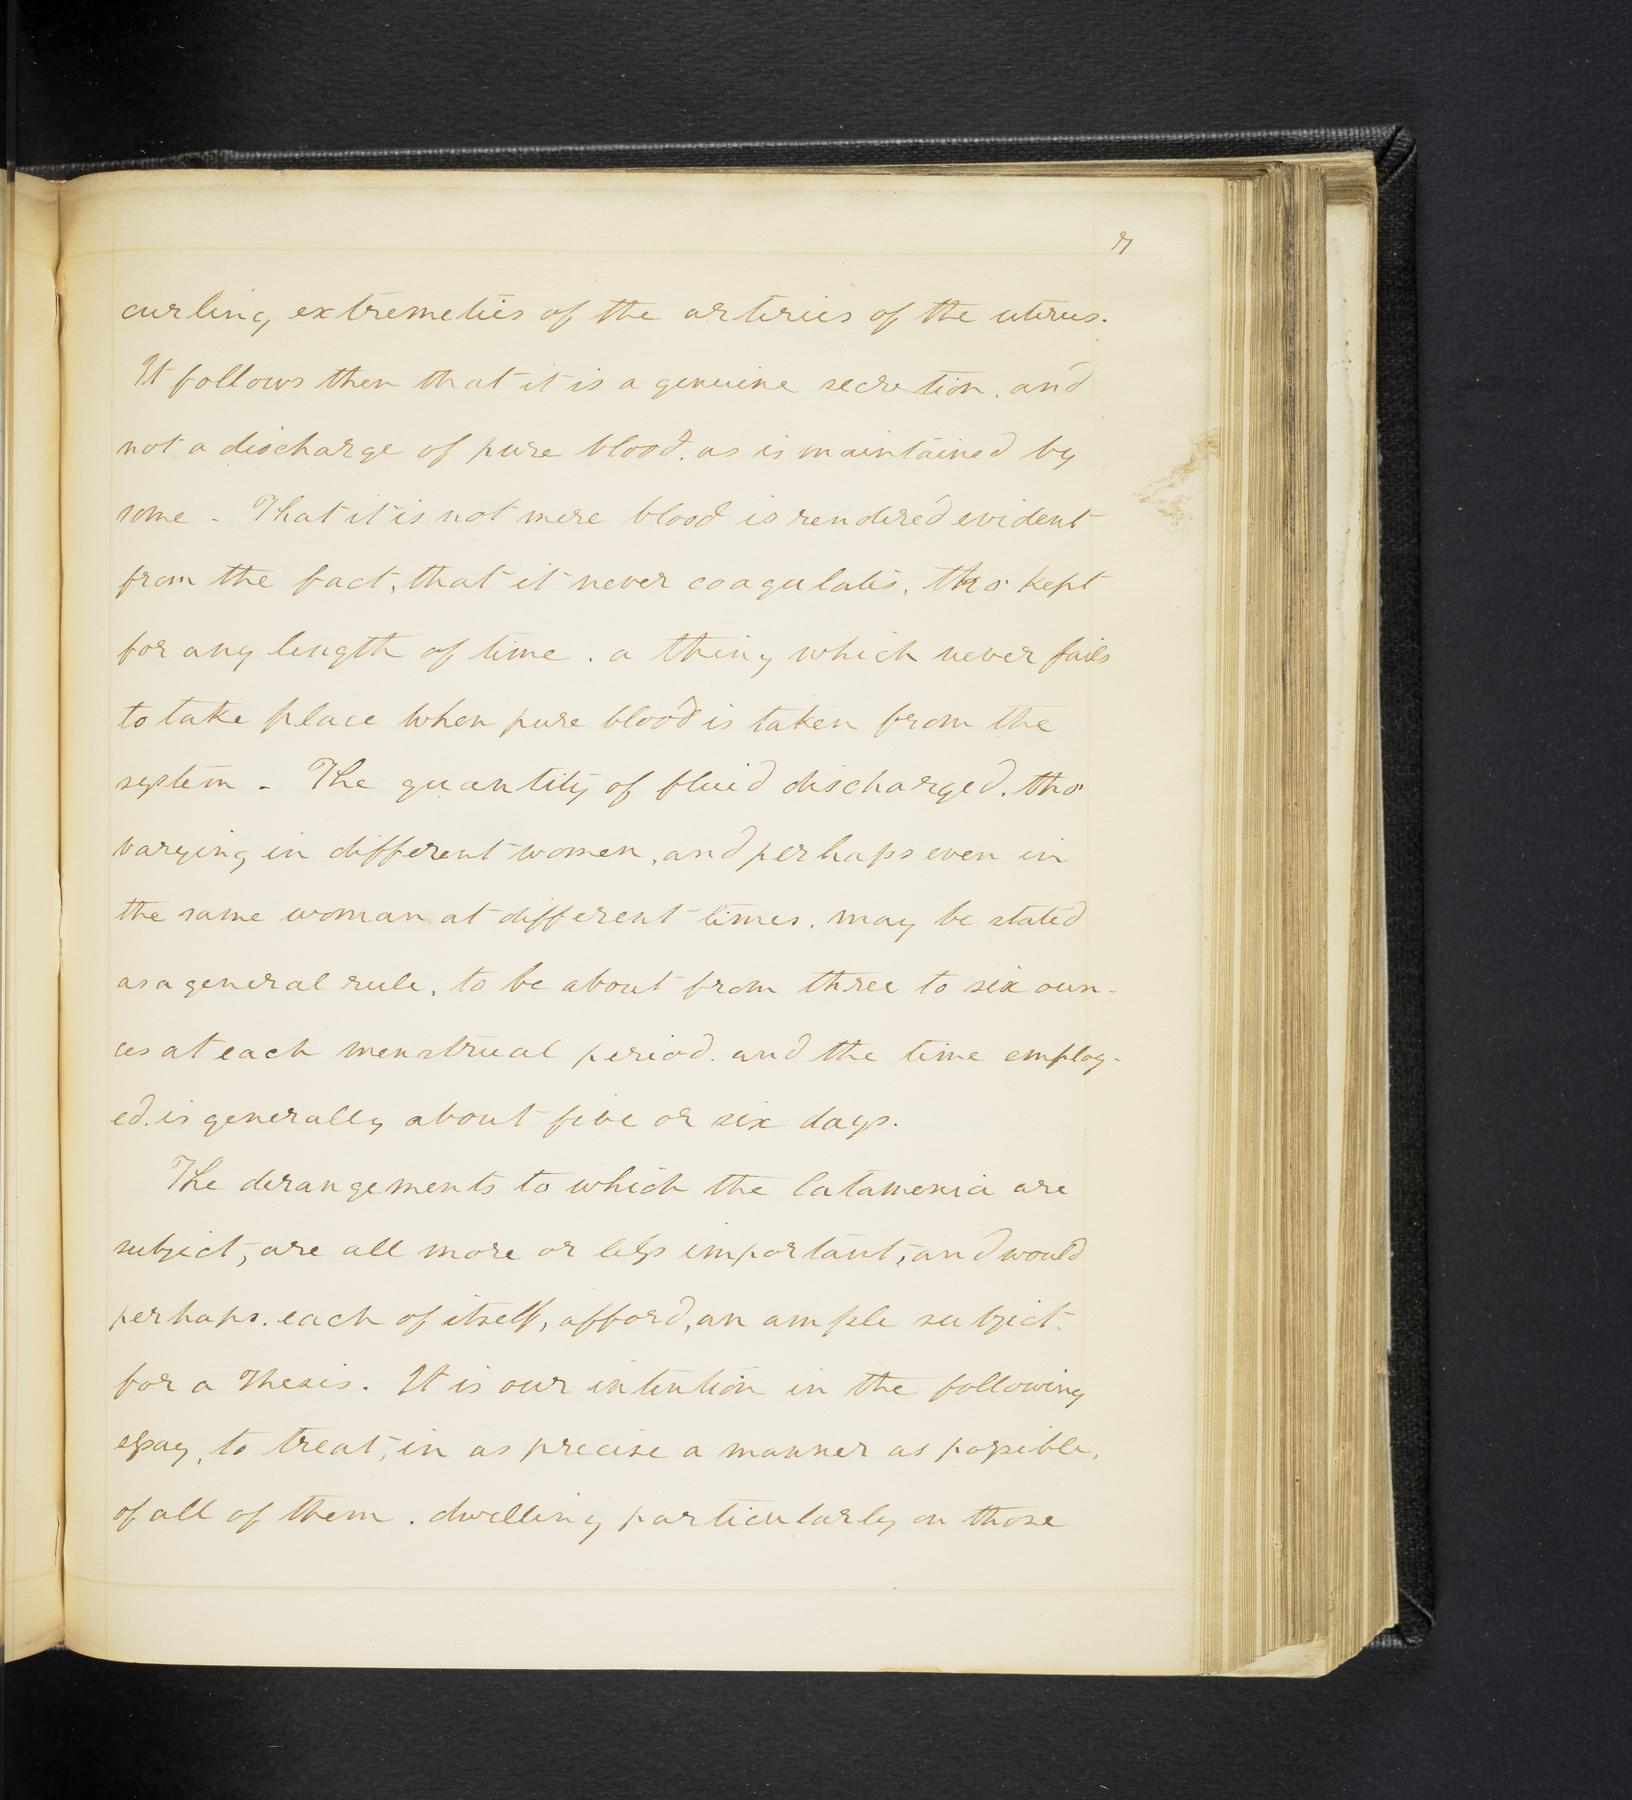 7
curling extremeties of the arteries of the uterus.
It follows then that it is a genuine secretion. and
not a discharge of pure blood. as is maintained by
some - That it is not mere blood is rendered evident
from the fact, that it never coagulates, tho' kept
for any length of time. a thing which never fails
to take place when pure blood is taken from the
system - The quantity of fluid discharged, tho'
varying in different women, and perhaps even in
the same woman at different times, may be stated
as a general rule, to be about from three to six oun-
ces at each menstrual period. and the time employ-
ed. is generally about five or six days.
The derangements to which the Catamenia are
subject, are all more or less important, and would
perhaps. each of itself, afford, an ample subject
for a Thesis. It is our intention in the following
essay, to treat, in as precise a manner as possible,
of all of them. dwelling particularly on those